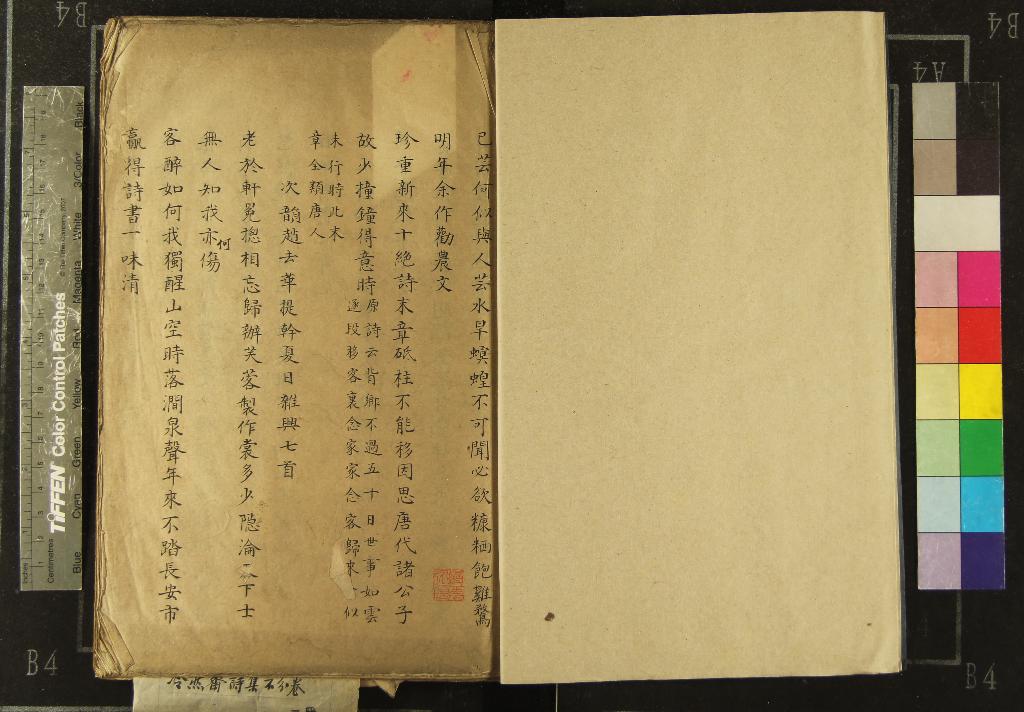 已芸何似與人芸水旱螟蝗不可聞必欲糠粞飽雞鶩
明年余作勸農文
珍重新來十絶詩末章砥柱不能移因思唐代諸公子
故少撞鐘得意時原詩云背鄉不過五十日世事如雲
逐段移客裏念家家念客歸來似
未行時此末
章全類唐人
次韻趙去華提幹夏日雜興七首
老於軒冕摠相忘歸辦芙蓉製作裳多少隠淪天下士
無人知我亦何傷
客醉如何我獨醒山空時落澗泉聲年來不踏長安市
贏得詩書一味清
冷然齋詩集不分卷
B4
B4
A4
B4
B4
TIFFEN Color Control Patches
© The Tiffen Company, 2007
Inches
Centimetres
Blue
Cyan
Green
Yellow
Red
Magenta
White
3/Color
Black